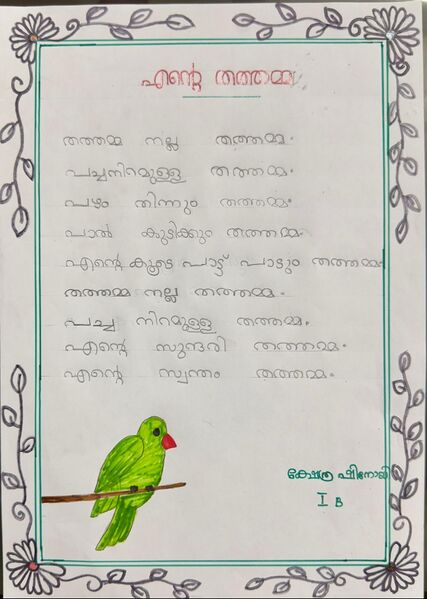 എന്റെ തത്തമ്മ
തത്തമ്മ നല്ല തത്തമ്മ.
പച്ചനിറമുള്ള തത്തമ്മ.
പഴം തിന്നും തത്തമ്മ.
പാൽ കുടിക്കും തത്തമ്മ.
എന്റെ കൂടെ പാട്ട് പാടും തത്തമ്മ.
തത്തമ്മ നല്ല തത്തമ്മ.
പച്ച നിറമുള്ള തത്തമ്മ.
എന്റെ സുന്ദരി തത്തമ്മ.
എന്റെ സ്വന്തം തത്തമ്മ.
ക്ഷേത്ര ഷിനോജ്
I B